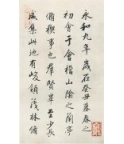 永和九年歲在癸丑暮春之
初會于會稽山陰之蘭亭
脩禊事也羣賢畢至少長
咸集此地有峻領茂林脩